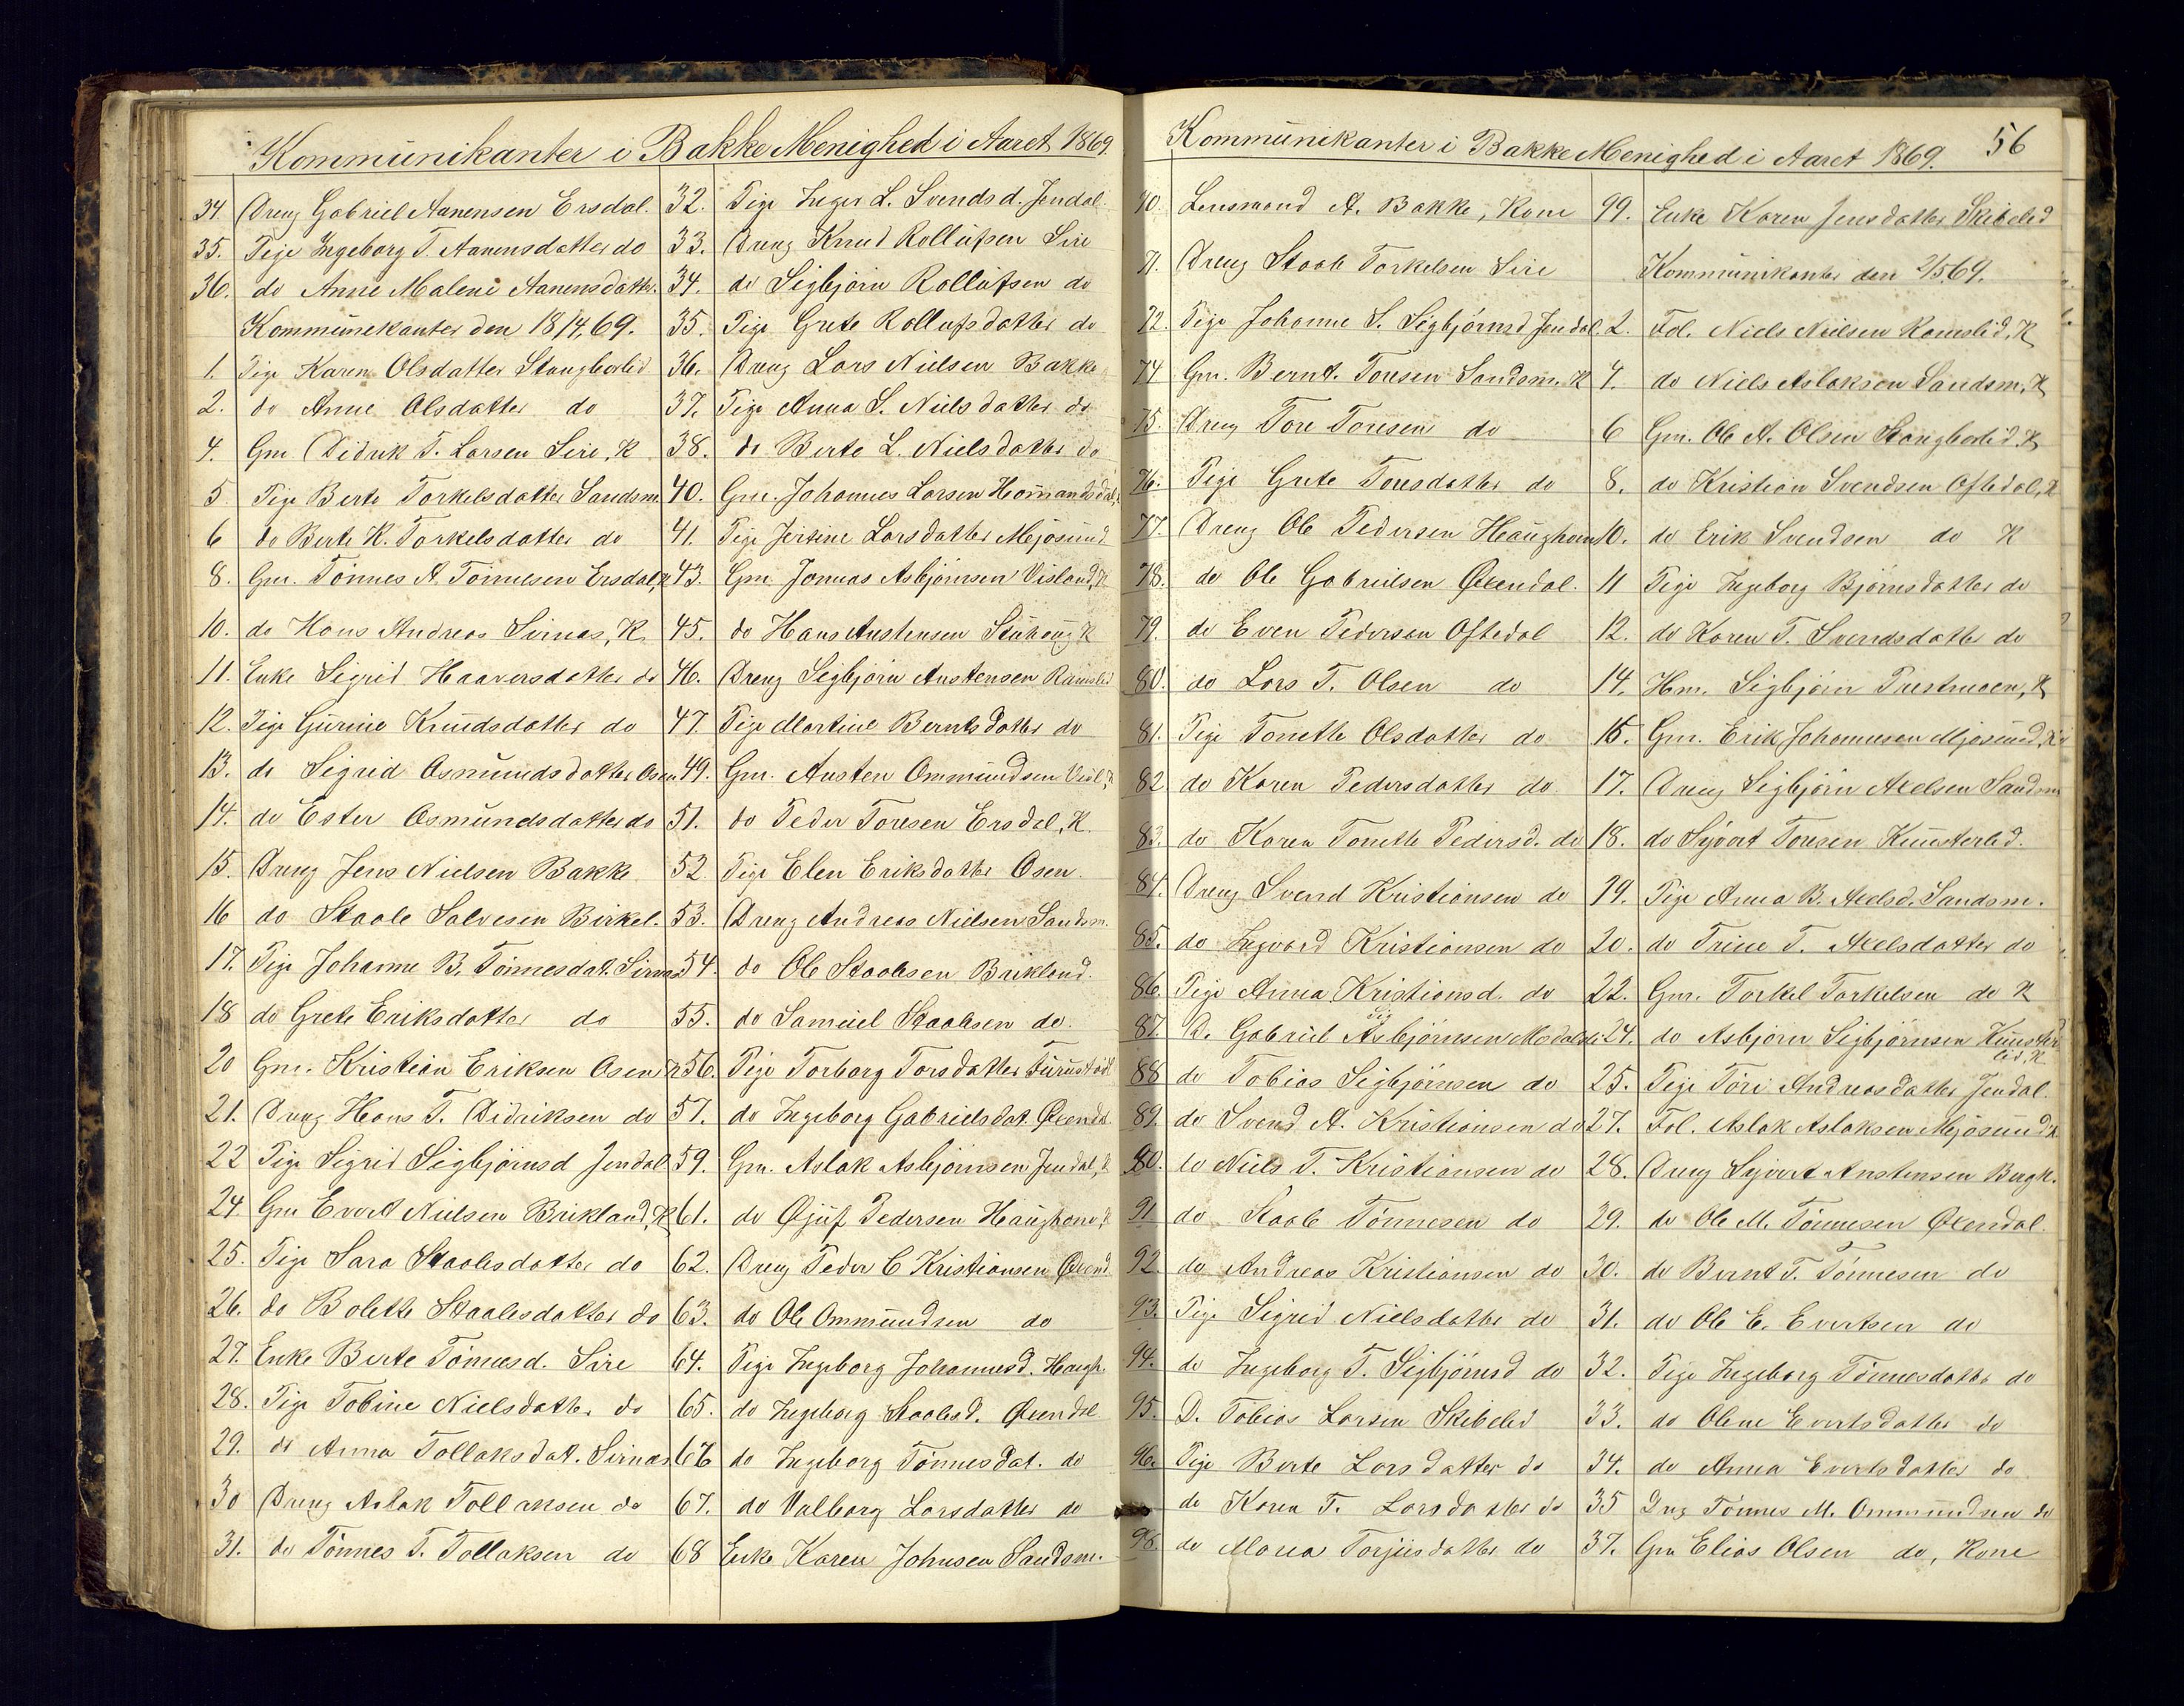 Kommunikanter i Bakke Menighed i Aaret 1869.
34. Dreng Gabriel Aanensen Ersdal.
35. Pige Ingeborg T. Aanensdatter do
36. do Anne Malene Aanensdatter.
Kommunekanter den 18/4,69.
1. Pige Karen Olsdatter Stangborlid
2. do Anne Olsdatter do
4. Gm Didrik T. Larsen Sire, K
5. Pige Berte Torkelsdatter Sandsm.
6 do Berte K. Torkelsdatter do
8. Gm. Tönnes A. Tönnesen Ersdal, K
10. do Hans Andreas Sirnas, K.
11. Enke Sigrid Haaversdatter do
12. Pige Gurine Knudsdatter do
13. do Sigrid Osmundsdatter Osen
14. do Ester Osmundsdatter do
15. Dreng Jens Nielsen Bakke
16 do Staale Salvesen Birkel.
17. Pige Johanne B. Tönnesdat. Sirnas
18 do Grete Eriksdatter do
20 Gm. Kristian Eriksen Osen K
21. Dreng Hans T. Didriksen do
22 Pige Sigrid Sigbjörnsd Jendal
24 Gm Evert Nielsen Brikland, K
25. Pige Sara Staalesdatter do
26. do Bolette Staalesdatter do
27. Enke Berte Tönnesd. Sire
28. Pige Tobine Nielsdatter do
29. do Anna Tollaksdat. Sirnas
30 Dreng Aslak Tollaksen do
31. do Tönnes T. Tollaksen do
32. Pige Inger L. Svendsd. Jendal.
33. Dreng Knud Rollufsen Sire
34. do Sigbjörn Rollufsen do
35. Pige Grete Rollufsdatter do
36. Dreng Lars Nielsen Bakke
37. Pige Anna S. Nielsdatter do
38. do Berte L. Nielsdatter do
40. Gm. Johannes Larsen Homandsdal,
41. Pige Jersine Larsdatter Mejösund
43. Gm. Jonas Asbjörnsen Visland, K
45. do Hans Austensen Stuhaug K
46. Dreng Sigbjörn Austensen Ramslid
47. Pige Martine Berntsdatter do
49. Gm. Austen Ommundsen Visl, K
51. do Peder Toresen Ersdal, K.
52. Pige Elen Eriksdatter Osen.
53. Dreng Andreas Nielsen Sandsm.
54. do Ole Staalesen Brikland.
55. do Samuel Staalesen do.
56. Pige Torborg Torsdatter
57. do Ingeborg Gabrielsdat. Öxendal.
59. Gm. Aslak Asbjörnsen Jendal, K
61. do Gjus Pedersen Haughom, K
62. Dreng Peder C Kristiansen Öxend
63. do Ole Ommundsen do
64. Pige Ingeborg Johannesd. Haugh.
65. do Ingeborg Staalesd. Öxendal
66 do Ingeborg Tönnesdat. do
67. do Valborg Larsdatter do
68 Enke Karen Johnsen Sandsm.
Kommunekanter i Bakke Menighed i Aaret 1869. 56
70. Lensmand A. Bakke, Kone
71. Dreng Staale Torkelsen Sire
72. Pige Johanne S. Sigbjörnsd Jendal.
74 Gm. Bernt. Toresen Sandsm. K
75. Dreng Tore Toresen do
76. Pige Grete Toresdatter do
77. Dreng Ole Pedersen Haughom
78. do Ole Gabrielsen Öxendal.
79. do Even Pedersen Oftedal
80. do Lars T. Olsen do
81. Pige Tonette Olsdatter do
82 do Karen Pedersdatter do
83. do Karen Tonette Pedersd. do
84. Dreng Svend Kristiansen do
85. do Ingvard Kristiansen do
86. Pige Anna Kristiansd. do
87. D. Gabriel Sigbjörnsen Modalsli
88 do Tobias Sigbjörnsen do
89. do Svend A. Kristiansen do
80. do Niels T. Kristiansen do
91 do Staale Tönnesen do
92 do Andreas Kristiansen do
93. Pige Sigrid Nielsdatter do
94. do Ingeborg T. Sigbjörnsd do
95. D. Tobias Larsen Skibelid
96. Pige Berte Larsdatter do
do Karen T. Larsdatter do
98. do Maren Torjusdatter do
99. Enke Karen Jensdatter Skibelid
Kommunikanter den 2/5.69.
2. Fol. Niels Nielsen Ramslid, K
4. do Niels Aslaksen Sandsm, K
6 Gm. Ole A. Olsen Stangborlid. K
8. do Kristian Svendsen Oftedal, K
10. do Erik Svendsen do K
11 Pige Ingeborg Björnsdatter do
12. do Karen T. Svendsdatter do
14. Hm. Sigbjörn Prestmoen, K
16. Gm. Erik Johannesen Mjösund, K
17. Dreng Sigbjörn Axelsen Sandsm
18. do Syvert Toresen Kunsterlid.
19. Pige Anna B. Axelsd. Sandsm.
20. do Trine T. Axelsdatter do
22. Gm. Torkel Torkelsen do K
24. do Asbjörn Sigbjörnsen Kunster
lid, K
25. Pige Tore Andreasdatter Jendal.
27. Fol. Aslak Aslaksen Mjösund K.
28. Dreng Syvert Austensen Bergh.
29. do Ole M. Tönnesen Öxendal.
30. do Bernt T. Tönnesen do
31. do Ole E. Evertsen do
32. Pige Ingeborg Tönnesdatter do
33. do Olene Evertsdatter do
34. do Anna Evertsdatter do
35 Dng Tönnes M. Ommundsen do
37. Gm Elias Olsen do, Kone